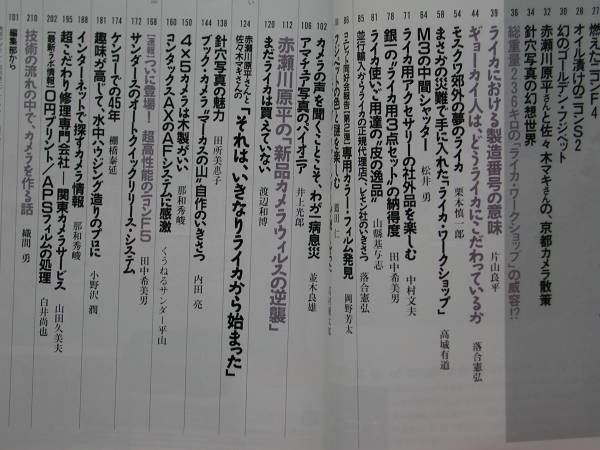 27 燃えたニコンF4
28 オイル漬けのニコンS2
30 幻のゴールデン・フジペット
32 赤瀬川原平さんと佐々木マキさんの、京都カメラ散策
34 針穴写真の幻想世界
36 総重量236キロの「ライカ・ワークショップ」の威容!?
39 ライカにおける製造番号の意味 片山良平
44 ギョーカイ人は、どうライカにこだわっているか 落合憲弘
54 モスクワ郊外の夢のライカ 栗木慎一郎
58 まさかの災難で手に入れた「ライカ・ワークショップ」 高城有道
68 M3の中間シャッター 松井 勇
71 ライカ用アクセサリーの社外品を楽しむ 中村文夫
78 銀一の「ライカ用3点セット」の納得度 田中希美男
81 ライカ使いご用達の“皮の逸品” 山縣基与志
85 並行輸入からライカの正規代理店へ、レモン社のいきさつ 落合憲弘
86 専用カラー・フィルム発見 岡野芳太
102 カメラの声を聞くことこそ、わが一病息災 並木良雄
106 アマチュア写真のパイオニア 井上光郎
112 赤瀬川原平の「新品カメラウィルスの逆襲」
120 まだライカは買えていない 渡辺和博
124 赤瀬川原平さんと佐々木マキさんの「それは、いきなりライカから始まった」
135 針穴写真の魅力 田所美恵子
144 ブック・カメラ“マーカスの山”自作のいきさつ 内田 亮
150 4×5カメラは木製がいい 那和秀峻
160 コンタックスAXのAFシステムに感激 くうねるサンダー平山
168 [速報]ついに登場! 超高性能のニコンF5 那和秀峻
172 サンダースのオートクイックリリース・システム 田中希美男
174 ケンコーでの45年 棚橋泰延
181 趣味が高じて、水中ハウジング造りのプロに 小野沢 潤
188 インターネットで探すカメラ情報 那和秀峻
195 超こだわり修理専門会社―関東カメラサービス 山田久美夫
202 [最新ラボ情報]0円プリント/APSフィルムの処理 白井尚也
210 技術の流れの中で、カメラを作る話 織間 勇
181 編集部から